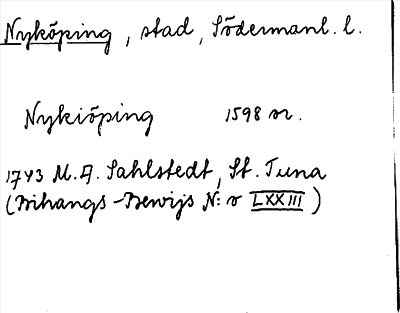 Nyköping, stad, Södermanl. l.
Nykiöping 1598
1743 M. A. Sahlstedt, St. Tuna
(Bihangs-Bewijs N:o LXXIII)